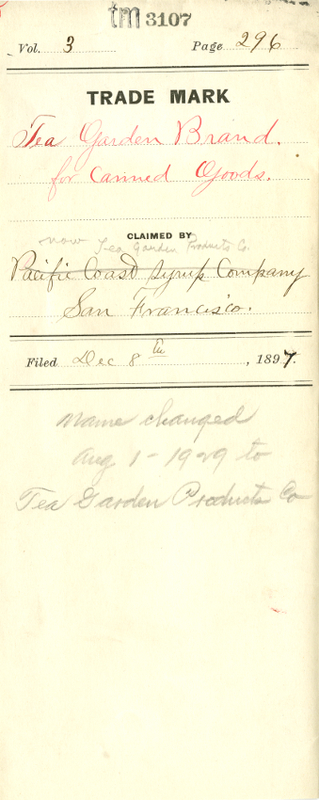 tm 3107
Vol. 3 Page 296
TRADE MARK
Tea Garden Brand.
for Canned Goods.
CLAIMED BY
now Tea Garden Products Co.
Pacific Coast Syrup Company
San Francisco.
Filed Dec 8th, 1897.
Name changed
Aug 1 - 1929 to
Tea Garden Products Co